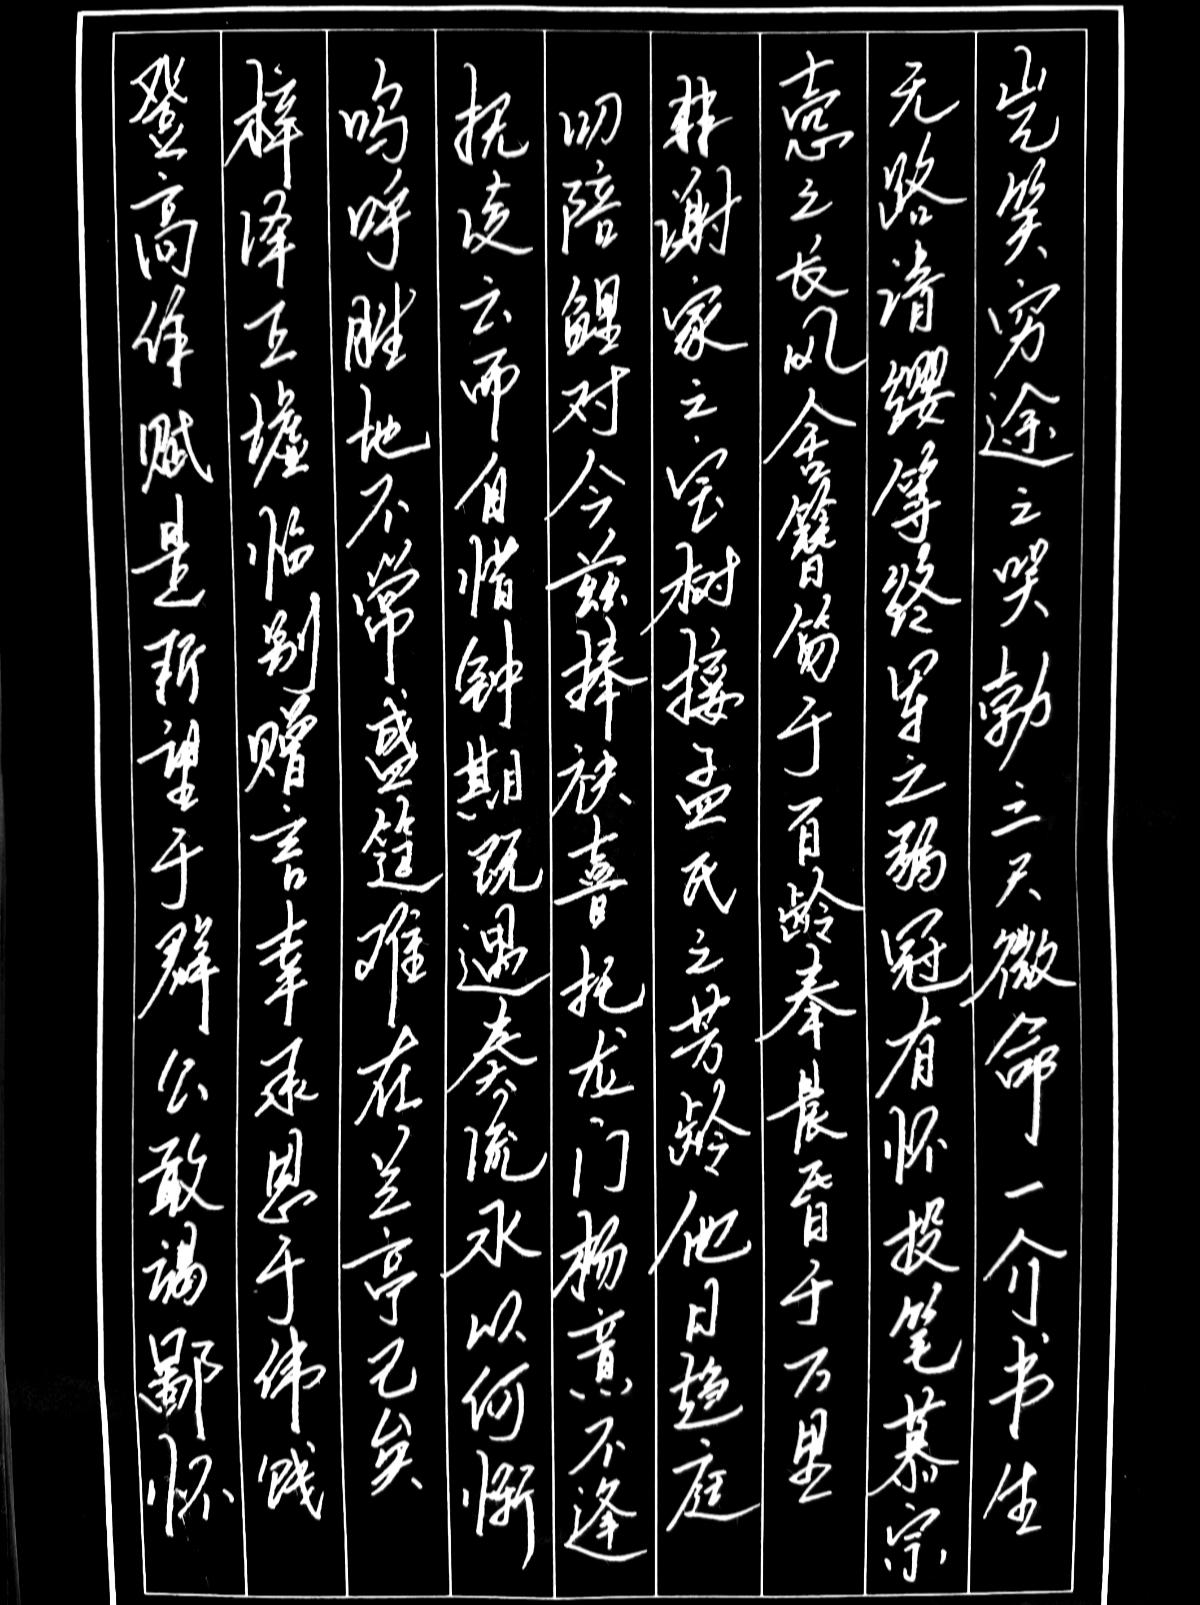 岂笑穷途之哭勃三尺微命一介书生
无路请缨等终军之弱冠有怀投笔慕宗
悫之长风舍簪笏于百龄奉晨昏于万里
非谢家之宝树接孟氏之芳龄他日趋庭
叨陪鲤对今兹捧袂喜托龙门杨意不逢
抚凌云而自惜钟期既遇奏流水以何惭
呜呼胜地不常盛筵难在兰亭已矣
梓泽丘墟临别赠言幸承恩于伟饯
登高作赋是所望于群公敢竭鄙怀